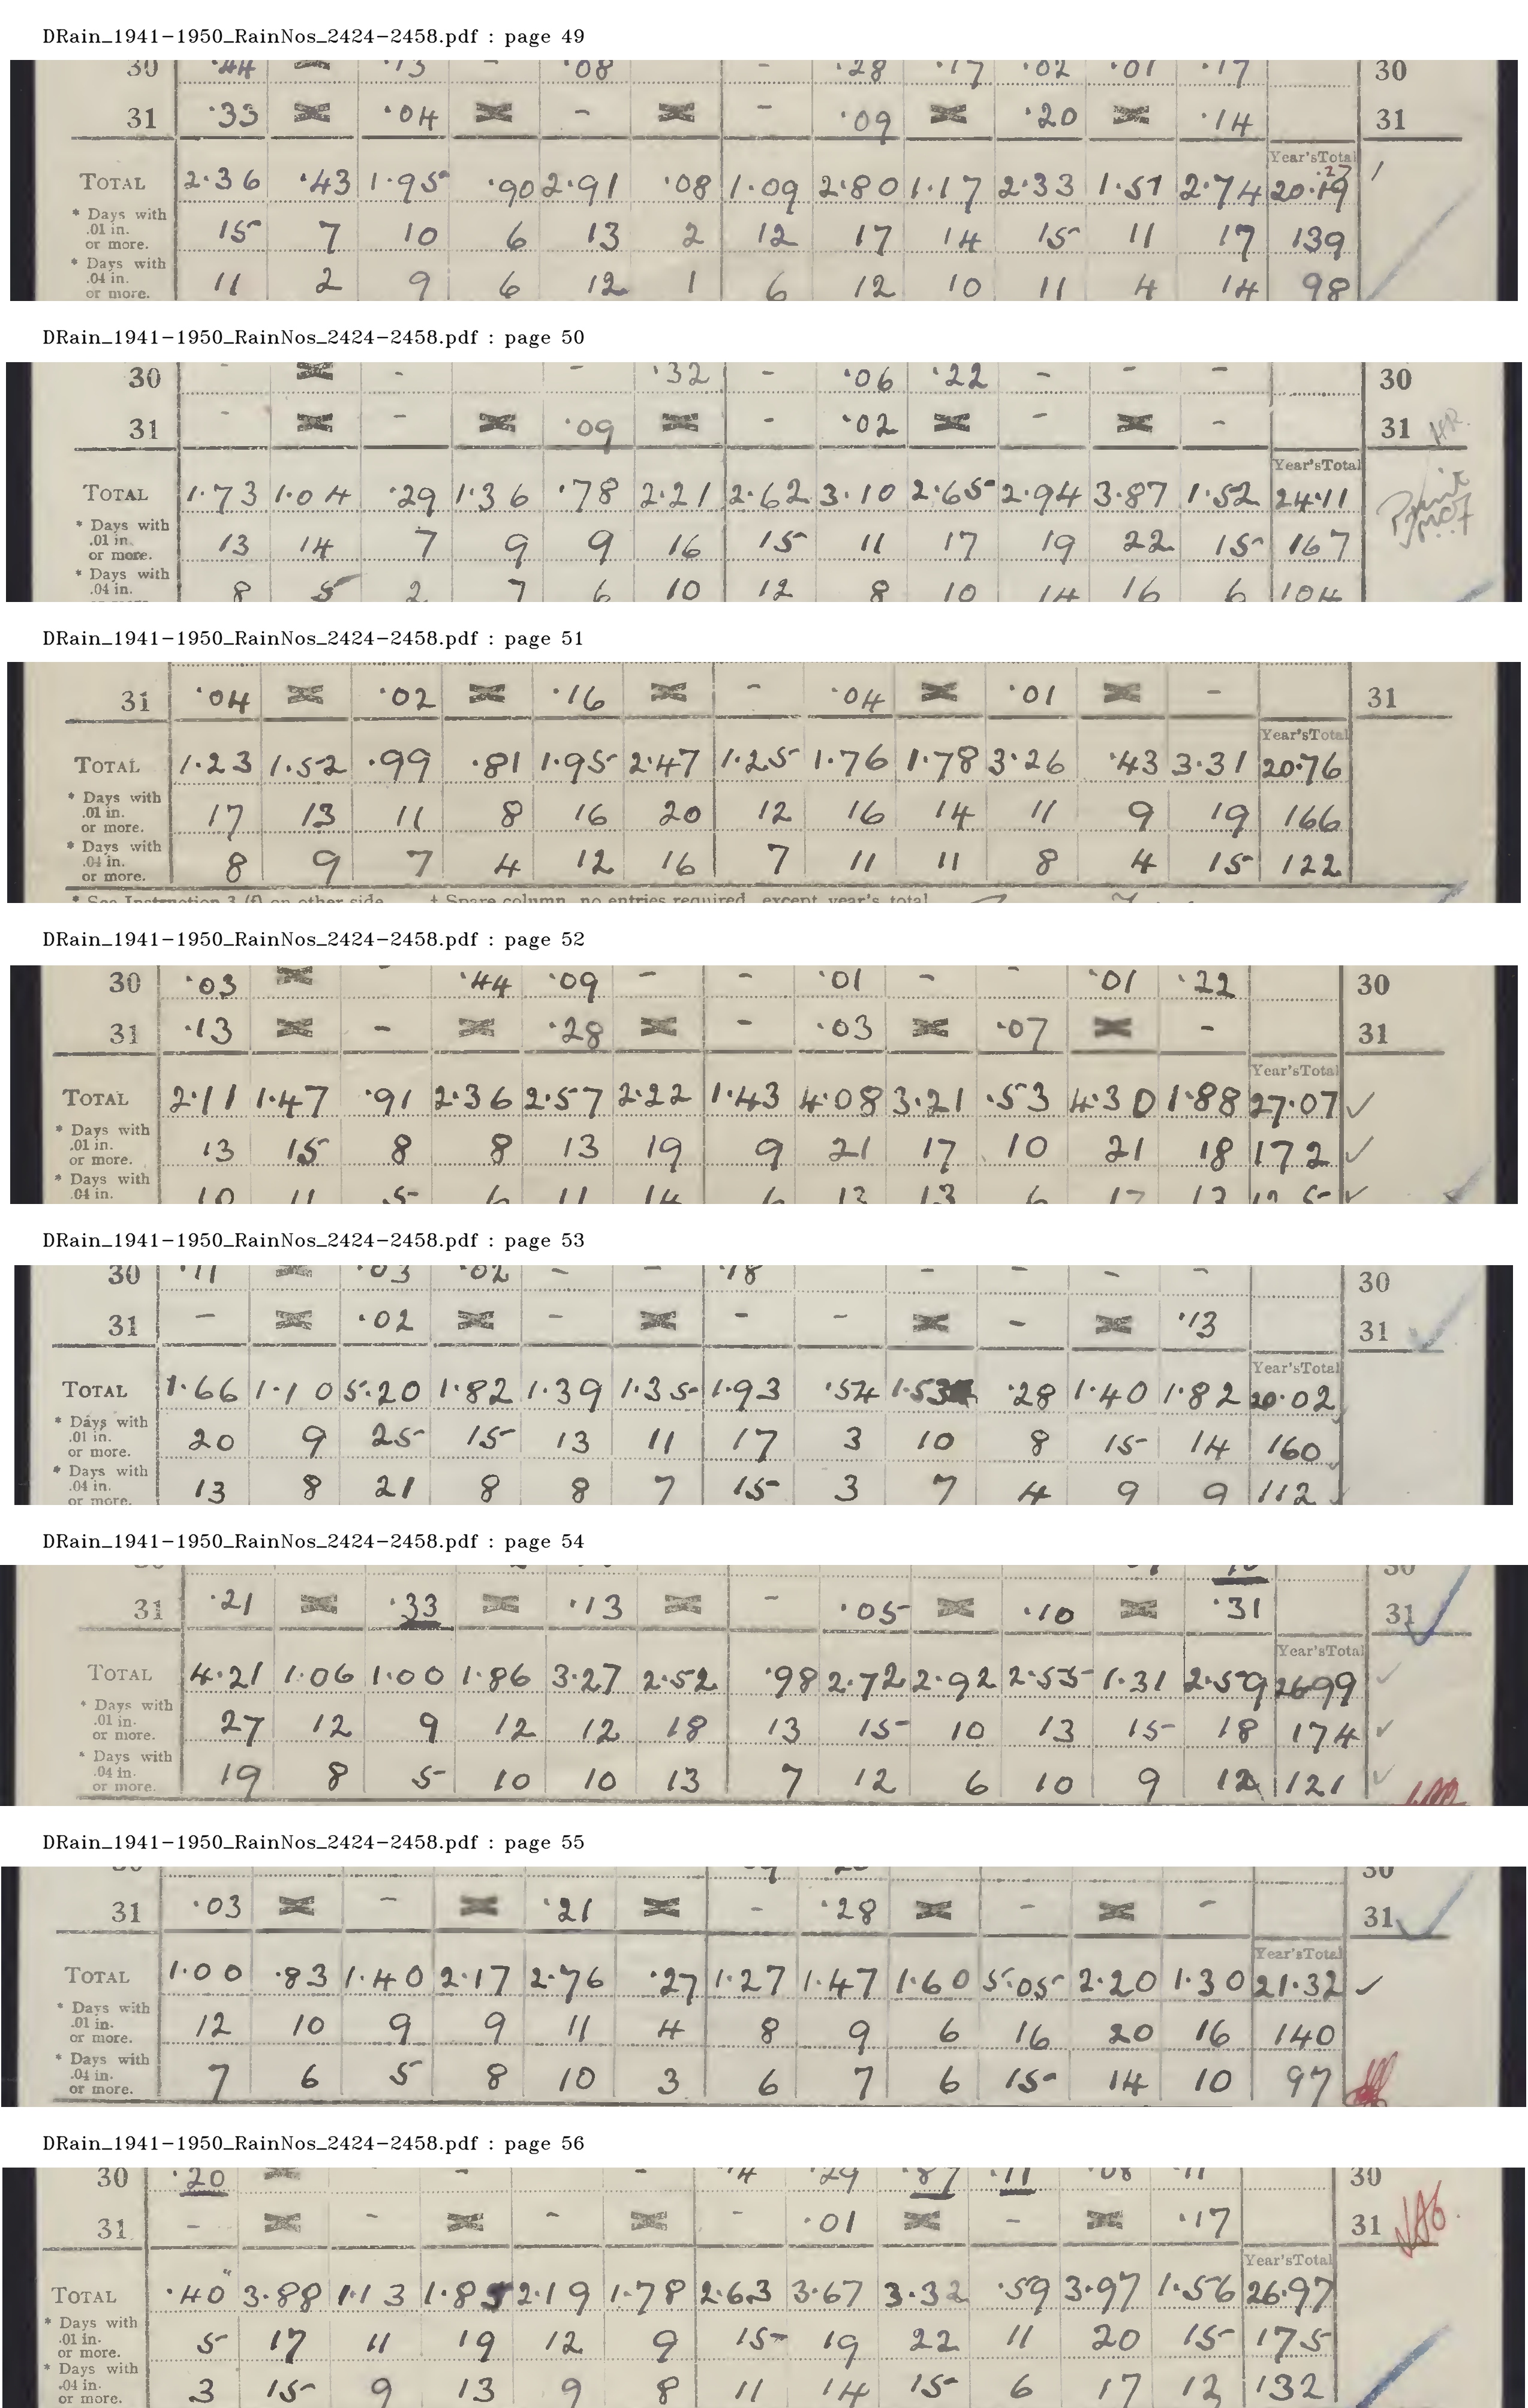 DRain_1941-1950_RainNos_2424-2458.pdf : page 49
30 .44 .13 - .08 - .28 .17 .02 .01 .17 30
31 .33 .04 - - .09 .20 .14 31
Year's Total
.27
TOTAL 2.36 .43 1.95 .90 2.91 .08 1.09 2.80 1.17 2.33 1.51 2.74 20.19
* Days with .01 in. or more. 15 7 10 6 13 2 12 17 14 15 11 17 139
* Days with .04 in. or more. 11 2 9 6 12 1 6 12 10 11 4 14 98
DRain_1941-1950_RainNos_2424-2458.pdf : page 50
30 - - - .32 - .06 .22 - - - 30
31 - - .09 - .02 - - 31 HR.
Year's Total
TOTAL 1.73 1.04 .29 1.36 .78 2.21 2.62 3.10 2.65 2.94 3.87 1.52 24.11
* Days with .01 in. or more. 13 14 7 9 9 16 15 11 17 19 22 15 167
* Days with .04 in. 8 5 2 7 6 10 12 8 10 14 16 6 104
DRain_1941-1950_RainNos_2424-2458.pdf : page 51
31 .04 .02 .16 - .04 .01 - 31
Year's Total
TOTAL 1.23 1.52 .99 .81 1.95 2.47 1.25 1.76 1.78 3.26 .43 3.31 20.76
* Days with .01 in. or more. 17 13 11 8 16 20 12 16 14 11 9 19 166
* Days with .04 in. or more. 8 9 7 4 12 16 7 11 11 8 4 15 122
* See Instruction 3 (f) on other side. † Spare column, no entries required, except year's total
DRain_1941-1950_RainNos_2424-2458.pdf : page 52
30 .03 - .44 .09 - - .01 - - .01 .22 30
31 .13 - .28 - .03 .07 - 31
Year's Total
TOTAL 2.11 1.47 .91 2.36 2.57 2.22 1.43 4.08 3.21 .53 4.30 1.88 27.07
* Days with .01 in. or more. 13 15 8 8 13 19 9 21 17 10 21 18 172
* Days with .04 in. 10 11 5 6 11 14 6 13 13 6 17 13
DRain_1941-1950_RainNos_2424-2458.pdf : page 53
30 .11 .03 .02 - - .18 - - - - 30
31 - .02 - - - - .13 31
Year's Total
TOTAL 1.66 1.10 5.20 1.82 1.39 1.35 1.93 .54 1.53 .28 1.40 1.82 20.02
* Days with .01 in. or more. 20 9 25 15 13 11 17 3 10 8 15 14 160
* Days with .04 in. or more. 13 8 21 8 8 7 15 3 7 4 9 9 112
DRain_1941-1950_RainNos_2424-2458.pdf : page 54
30 30
31 .21 .33 .13 - .05 .10 .31 31
Year's Total
TOTAL 4.21 1.06 1.00 1.86 3.27 2.52 .98 2.72 2.92 2.55 1.31 2.59 26.99
* Days with .01 in. or more. 27 12 9 12 12 18 13 15 10 13 15 18 174
* Days with .04 in. or more. 19 8 5 10 10 13 7 12 6 10 9 12 121
DRain_1941-1950_RainNos_2424-2458.pdf : page 55
30 30
31 .03 - .21 - .28 - - 31
Year's Total
TOTAL 1.00 .83 1.40 2.17 2.76 .27 1.27 1.47 1.60 5.05 2.20 1.30 21.32
* Days with .01 in. or more. 12 10 9 9 11 4 8 9 6 16 20 16 140
* Days with .04 in. or more. 7 6 5 8 10 3 6 7 6 15 14 10 97
DRain_1941-1950_RainNos_2424-2458.pdf : page 56
30 .20 - - - .14 .29 .87 .11 .08 .11 30
31 - - - - .01 - .17 31
Year's Total
TOTAL .40 3.88 1.13 1.85 2.19 1.78 2.63 3.67 3.32 .59 3.97 1.56 26.97
* Days with .01 in. or more. 5 17 11 19 12 9 15 19 22 11 20 15 175
* Days with .04 in. or more. 3 15 9 13 9 8 11 14 15 6 17 12 132